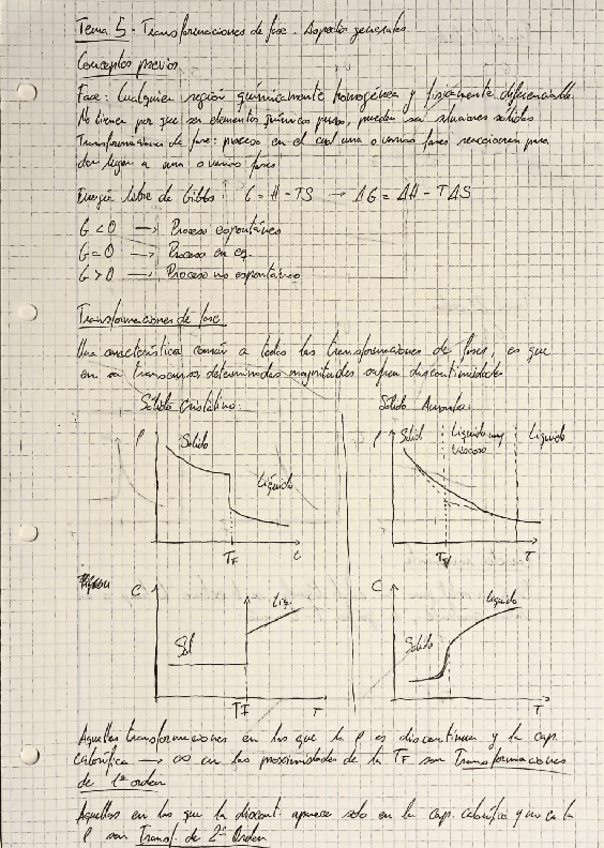 Tema 5 - Transformaciones de fase. Aspectos generales
Conceptos previos
Fase: Cualquier región químicamente homogénea y físicamente diferenciable.
No tienen por que ser elementos químicos puros, pueden ser soluciones sólidas
Transformaciones de fase: proceso en el cual una o varias fases reaccionan para
dar lugar a una o varias fases
Energía libre de Gibbs: G = H - TS → ΔG = ΔH - TΔS
G < 0 → Proceso espontáneo
G = 0 → Proceso en eq.
G > 0 → Proceso no espontáneo
Transformaciones de fase
Una característica común a todas las transformaciones de fases, es que
en su transcurso determinadas magnitudes sufren discontinuidades
Sólido Cristalino:
Sólido Amorfo:
ρ
Sólido
Líquido
T_F
ρ
Sólid
Líquido muy
viscoso
Líquido
T
C
Sol
Liq.
TF
T
C
Sólido
Líquido
T
Aquellas transformaciones en las que la ρ es discontinua y la cap.
calorífica → ∞ en las proximidades de la T_F son Transformaciones
de 1er orden
Aquellas en las que la disconti. aparece solo en la cap. calorífica y no en la
ρ son Transf. de 2º Orden